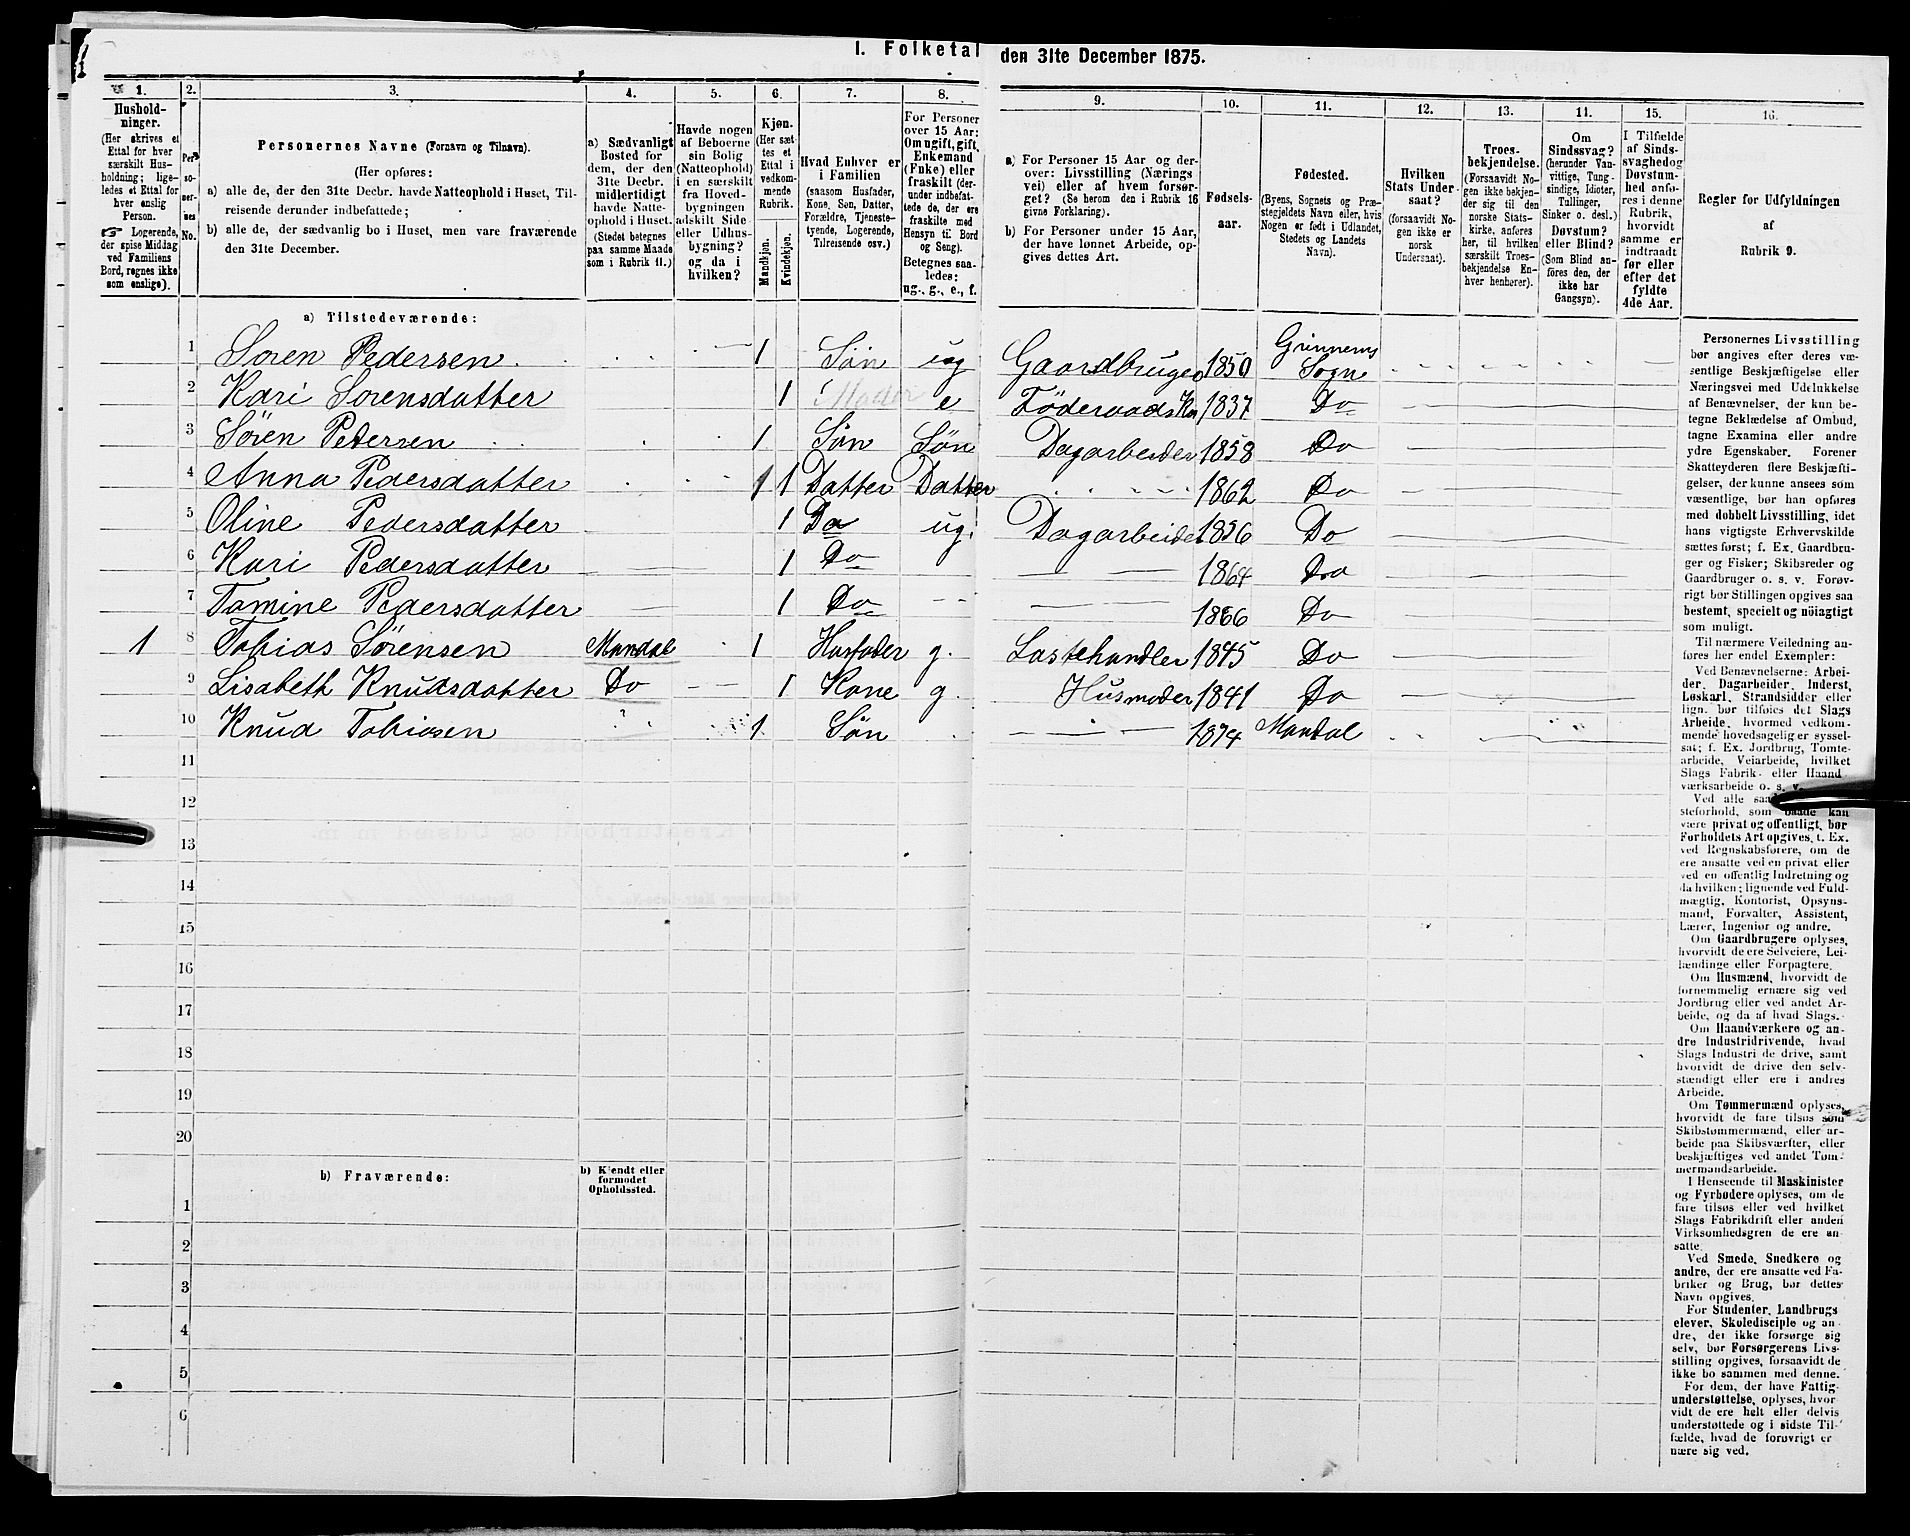 I. Folketal den 31te December 1875.
1. 2. 3. 4. 5. 6. 7. 8. 9. 10. 11. 12. 13. 11. 15. 16.
Hushold-
ninger.
(Her skrives et
Ettal for hver
særskilt Hus-
holdning; lige-
ledes et Ettal for
hver enslig
Person.
☞ Logerende,
der spise Middag
ved Familiens
Bord, regnes ikke
som enslige).
Per-
so-
ner-
nes
No.
Personernes Navne (Fornavn og Tilnavn).
(Her opføres:
a) alle de, der den 31te Decbr. havde Natteophold i Huset, Til-
reisende derunder indbefattede;
b) alle de, der sædvanlig bo i Huset, men vare fraværende
den 31te December.
a) Sædvanligt
Bosted for
dem, der den
31te Decbr.
midlertidigt
havde Natte-
ophold i Huset.
(Stedet betegnes
paa samme Maade
som i Rubrik 11.)
Havde nogen
af Beboerne
sin Bolig
(Natteophold)
i en særskilt
fra Hoved-
bygningen
adskilt Side
eller Udhus-
bygning?
og da i
hvilken?
Kjøn.
(Her sæt-
tes et
Ettal i
vedkom-
mende
Rubrik.
Mandkjøn.
Kvindekjøn.
Hvad Enhver er
i Familien
(saasom Husfader,
Kone, Søn, Datter,
Forældre, Tjeneste-
tyende, Logerende,
Tilreisende osv.)
For Personer
over 15 Aar:
Om ugift, gift,
Enkemand
(Enke) eller
fraskilt (der-
under indbefat-
tede de, der ere
fraskilte med
Hensyn til Bord
og Seng).
Betegnes saa-
ledes:
ug., g., e., f.
a) For Personer 15 Aar og der-
over: Livsstilling (Nærings
vei) eller af hvem forsør-
get? (Se herom den i Rubrik 16
givne Forklaring).
b) For Personer under 15 Aar,
der have lønnet Arbeide, op-
gives dettes Art.
Fødsels-
aar.
Fødested.
(Byens, Sognets og Præ-
stegjeldets Navn eller, hvis
Nogen er født i Udlandet,
Stedets og Landets
Navn).
Hvilken
Stats Under-
saat?
(forsaavidt No-
gen ikke er
norsk
Undersaat).
Troes-
bekjendelse.
(Forsaavidt No-
gen ikke bekjen-
der sig til den
norske Stats-
kirke, anføres
her, til hvilken
særskilt Troes-
bekjendelse En-
hver henhører).
Om
Sindssvag?
(herunder Van-
vittige, Tung-
sindige, Idioter,
Tullinger,
Sinker o. desl.)
Døvstum?
eller Blind?
(Som Blind an-
føres den, der
ikke har
Gangsyn).
I Tilfælde
af Sinds-
svaghed og
Døvstum-
hed anfø-
res i denne
Rubrik,
hvorvidt
samme er
indtraadt
før eller
efter det
fyldte
4de Aar.
Regler for Udfyldningen
af
Rubrik 9.
a) Tilstedeværende:
1 Soren Pedersen 1 Søn ug Gaardbruger 1850 Sogn
2 Kari Sorensdatter 1 Moder e Föderaads 1837 Do
3 Sören Pedersen 1 Sön Søn Dagarbeider 1858 Do
4 Anna Pedersdatter 1 1 Datter Datter 1862 Do
5 Oline Pedersdatter 1 Do ug. Dagarbeider 1856 Do
6 Kari Pedersdatter 1 Do 1864 Do
7 Tomine Pedersdatter 1 Do 1866 Do
1 8 Tobias Sörensen Mandal 1 Husfader g. Lastehandler 1845 Do
9 Lisabeth Knudsdatter Do 1 Kone g. Husmoder 1841 Do
10 Knud Tobiasen 1 Søn 1874 Mandal
11
12
13
14
15
16
17
18
19
20
b) Fraværende:
b) Kjendt eller
formodet
Opholdssted.
1
2
3
4
5
6
Personernes Livsstilling
bør angives efter deres væ-
sentlige Beskjæftigelse eller
Næringsvei med Udelukkelse
af Benævnelser, der kun be-
tegne Beklædelse af Ombud,
tagne Examina eller andre
ydre Egenskaber. Forener
Skatteyderen flere Beskjæfti-
gelser, der kunne ansees som
væsentlige, bør han opføres
med dobbelt Livsstilling, idet
hans vigtigste Erhvervskilde
sættes først; f. Ex. Gaardbru-
ger og Fisker; Skibsreder og
Gaardbruger o. s. v. Forøv-
rigt bør Stillingen opgives saa
bestemt, specielt og nöiagtigt
som muligt.
Til nærmere Veiledning an-
føres her endel Exempler:
Ved Benævnelserne: Arbei-
der, Dagarbeider, Inderst,
Løskarl, Strandsidder eller
lign. bør tilføies det Slags
Arbeide, hvormed vedkom-
mende hovedsagelig er syssel-
sat; f. Ex. Jordbrug, Tomte-
arbeide, Veiarbeide, hvilket
Slags Fabrik- eller Haand
værksarbeide o. s. v.
Ved alle
steforhold, som baade kan
være privat og offentligt, bør
Forholdets Art opgives, t. Ex.
ved Regnskabsførere, om de
ere ansatte ved en privat eller
ved en offentlig Indretning og
da hvilken; lignende ved Fuld-
mægtig, Kontorist, Opsyns-
mand, Forvalter, Assistent,
Lærer, Ingeniør og andre.
Om Gaardbrugere oplyses,
hvorvidt de ere Selveiere, Lei-
lændinge eller Forpagtere.
Om Husmænd, hvorvidt de
fornemmelig ernære sig ved
Jordbrug eller ved andet Ar-
beide, og da af hvad Slags.
Om Haandværkere og an-
dre Industridrivende, hvad
Slags Industri de drive, samt
hvorvidt de drive den selv-
stændigt eller ere i andres
Arbeide.
Om Tømmermænd oplyses,
hvorvidt de fare tilsøs som
Skibstømmermænd, eller ar-
beide paa Skibsværfter, eller
beskjæftiges ved andet Tøm-
mermandsarbeide.
I Henseende til Maskinister
og Fyrbødere oplyses, om de
fare tilsøs eller ved hvilket
Slags Fabrikdrift eller anden
Virksomhedsgren de ere an-
satte.
Ved Smede, Snedkere og
andre, der ere ansatte ved Fa-
briker og Brug, bør dettes
Navn opgives.
For Studenter, Landbrugs
elever, Skoledisciple og an-
dre, der ikke forsørge sig
selv, bør Forsørgerens Livs-
stilling opgives, forsaavidt de
ikke bo sammen med denne.
For dem, der have Fattig-
understøttelse, oplyses, hvor-
vidt de ere helt eller delvis
understøttede og i sidste Til-
fælde, hvad de forøvrigt er
nære sig ved.